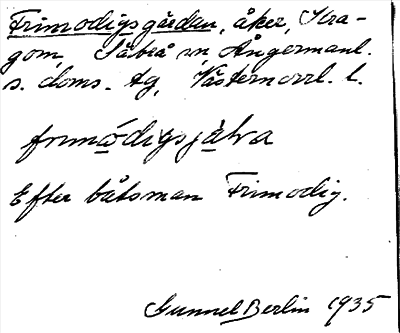 Frimodigsgärden, åker, Stra-
gom, Säbrå sn, Ångermanl.
s. doms. tg, Västernorrl. l.
frimodigsjäḷra
Efter båtsman Frimodig.
Gunnel Berlin 1935